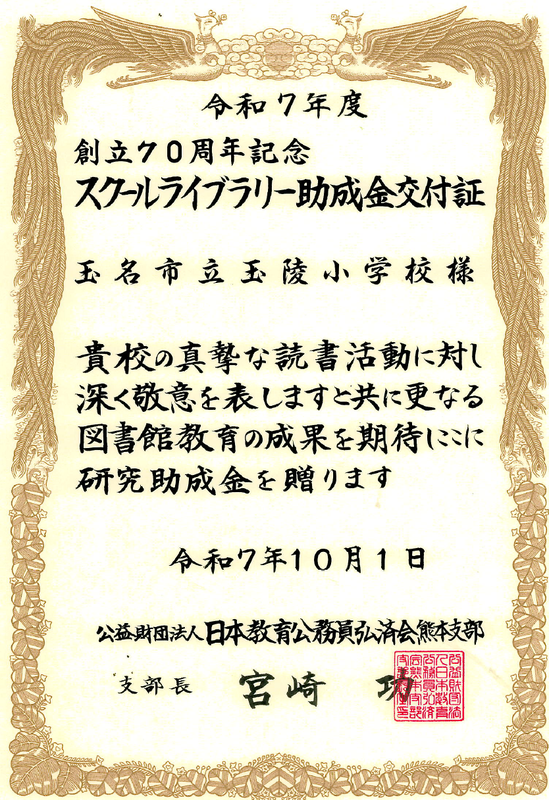 令和7年度
創立70周年記念
スクールライブラリー助成金交付証
玉名市立玉陵小学校様
貴校の真摯な読書活動に対し
深く敬意を表しますと共に更なる
図書館教育の成果を期待しここに
研究助成金を贈ります
令和7年10月1日
公益財団法人日本教育公務員弘済会熊本支部
支部長 宮崎 功